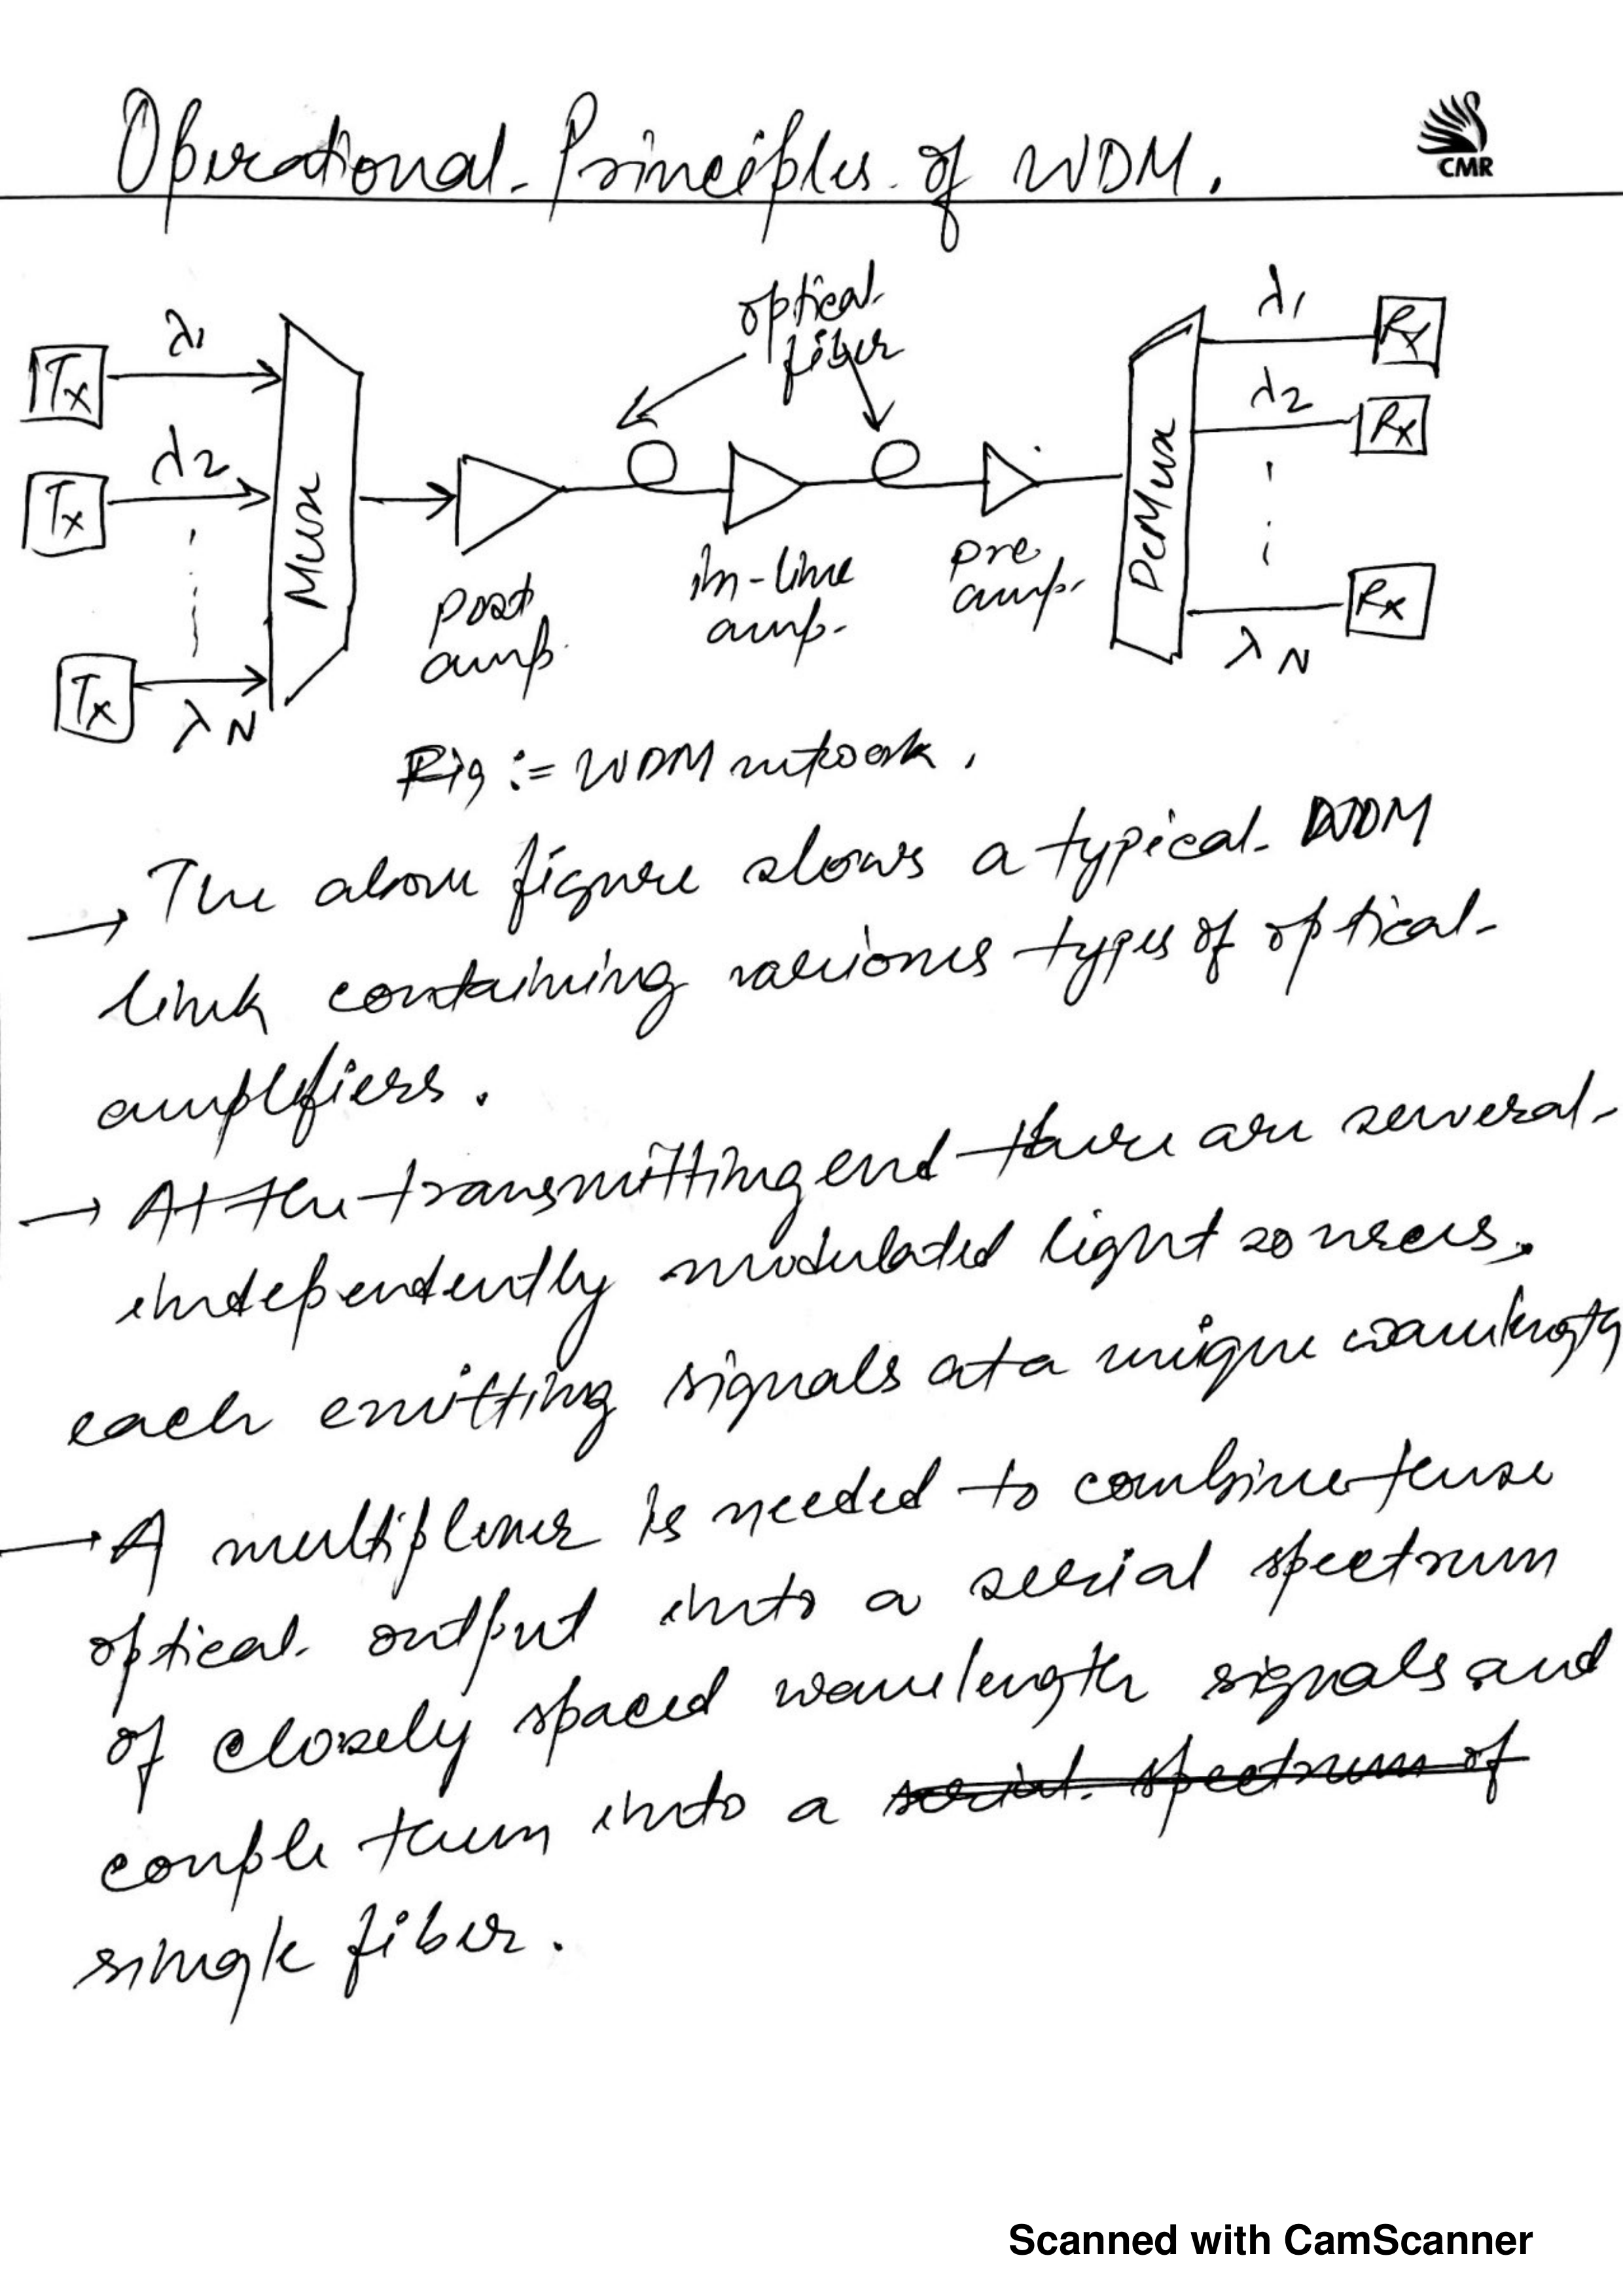 Operational Principles of WDM.
CMR
optical
fiber
λ1
λ1
Tx
Rx
λ2
λ2
Tx
Rx
Mux
DeMux
post
amp.
in-line
amp.
pre
amp.
Tx
Rx
λN
λN
Fig := WDM network.
→ The above figure shows a typical WDM
link containing various types of optical
amplifiers.
→ At the transmitting end there are several
independently modulated light sources,
each emitting signals at a unique wavelength
→ A multiplexer is needed to combine these
optical output into a serial spectrum
of closely spaced wavelength signals and
couple them into a serial spectrum of
single fiber.
Scanned with CamScanner